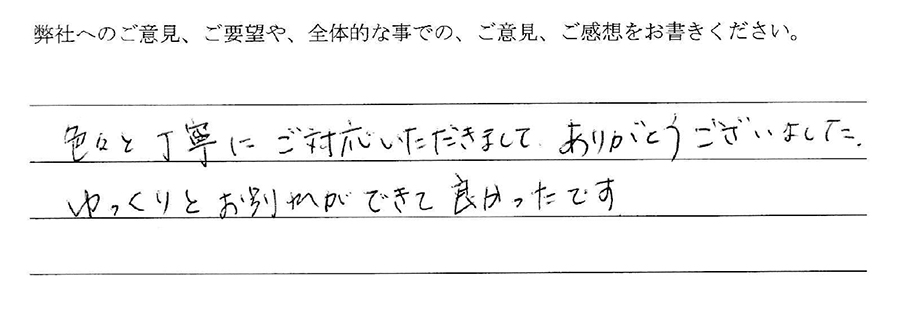 弊社へのご意見、ご要望や、全体的な事での、ご意見、ご感想をお書きください。
色々と丁寧にご対応いただきまして、ありがとうございました。
ゆっくりとお別れができて良かったです